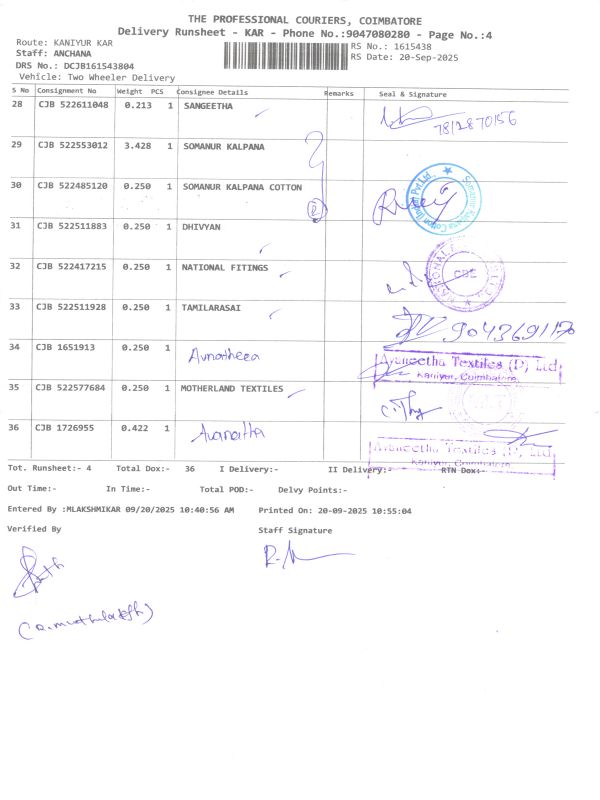 THE PROFESSIONAL COURIERS, COIMBATORE
Delivery Runsheet - KAR - Phone No.:9047080280 - Page No.:4
Route: KANIYUR KAR
RS No.: 1615438
Staff: ANCHANA
RS Date: 20-Sep-2025
DRS No.: DCJB161543804
Vehicle: Two Wheeler Delivery
S No Consignment No Weight PCS Consignee Details Remarks Seal & Signature
28 CJB 522611048 0.213 1 SANGEETHA
29 CJB 522553012 3.428 1 SOMANUR KALPANA
30 CJB 522485120 0.250 1 SOMANUR KALPANA COTTON 2
Somanur Kalpana Cotton Pvt. Ltd.
31 CJB 522511883 0.250 1 DHIVYAN
32 CJB 522417215 0.250 1 NATIONAL FITINGS
NATIONAL CBE
33 CJB 522511928 0.250 1 TAMILARASAI
34 CJB 1651913 0.250 1
Avaneetha Textiles (P) Ltd
Kaniyur, Coimbatore.
35 CJB 522577684 0.250 1 MOTHERLAND TEXTILES
36 CJB 1726955 0.422 1
Avaneetha Textiles (P) Ltd
Kaniyur, Coimbatore
Tot. Runsheet:- 4 Total Dox:- 36 I Delivery:- II Delivery:- RTN Dox:-
Out Time:- In Time:- Total POD:- Delvy Points:-
Entered By :MLAKSHMIKAR 09/20/2025 10:40:56 AM Printed On: 20-09-2025 10:55:04
Verified By Staff Signature